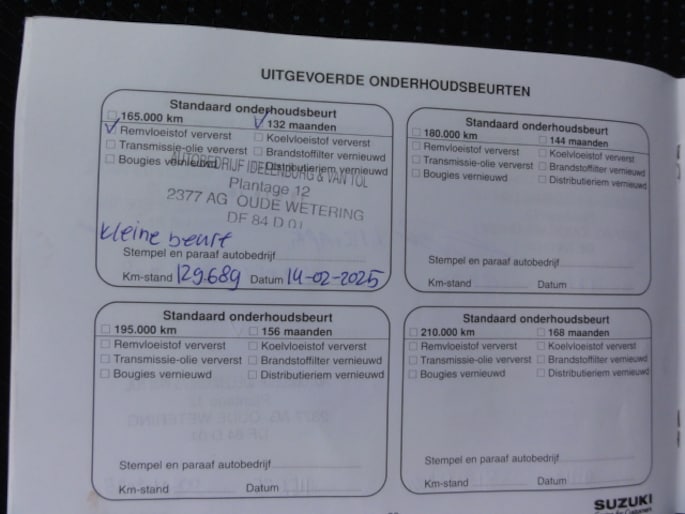 UITGEVOERDE ONDERHOUDSBEURTEN
Standaard onderhoudsbeurt
165.000 km 132 maanden
Remvloeistof ververst Koelvloeistof ververst
Transmissie-olie ververst Brandstoffilter vernieuwd
Bougies vernieuwd Distributieriem vernieuwd
AUTOBEDRIJF IDELENBURG & VAN TOL
Plantage 12
2377 AG OUDE WETERING
DF 84 D 01
kleine beurt
Stempel en paraaf autobedrijf
Km-stand 129.689 Datum 14-02-2025
Standaard onderhoudsbeurt
180.000 km 144 maanden
Remvloeistof ververst Koelvloeistof ververst
Transmissie-olie ververst Brandstoffilter vernieuwd
Bougies vernieuwd Distributieriem vernieuwd
Stempel en paraaf autobedrijf
Km-stand Datum
Standaard onderhoudsbeurt
195.000 km 156 maanden
Remvloeistof ververst Koelvloeistof ververst
Transmissie-olie ververst Brandstoffilter vernieuwd
Bougies vernieuwd Distributieriem vernieuwd
Stempel en paraaf autobedrijf
Km-stand Datum
Standaard onderhoudsbeurt
210.000 km 168 maanden
Remvloeistof ververst Koelvloeistof ververst
Transmissie-olie ververst Brandstoffilter vernieuwd
Bougies vernieuwd Distributieriem vernieuwd
Stempel en paraaf autobedrijf
Km-stand Datum
SUZUKI